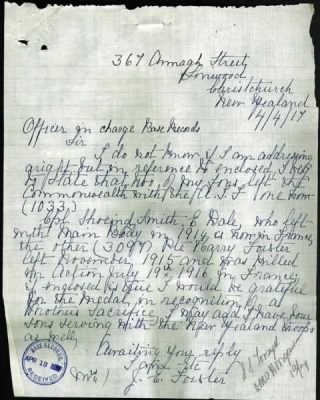 367 Armagh Street
Linwood,
Christchurch
New Zealand
4/4/17
Officer in charge Base Records
Sir
I do not know if I am addressing
aright, but in reference to enclosed, I beg
to state that two of my sons left the
Commonwealth with the A.I.F. one now
(1033)
Cpl Smith, E Dale, who left
with main Body in 1914 is now in France,
the other (3097) Pte Harry Forster
left November 1915 and was killed
in Action July 19th 1916 in France,
if enclosed is true I would be grateful
for the medal, in recognition of a
Mothers Sacrifice, I may add I have four
sons serving with the New Zealand troops
as well,
Awaiting Your reply
I am etc
(Mrs) J. E. Forster
BASE RECORDS
APR 18
RECEIVED